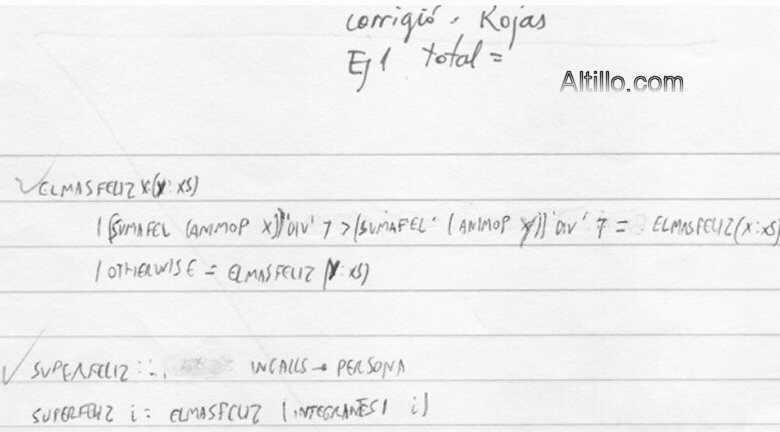 corrigió. Rojas
Ej 1 total =
Altillo.com
ELMASFELIZ x (y:xs)
| (SUMAFEL (ANIMOP X)) 'DIV' 7 > (SUMAFEL (ANIMOP y)) 'DIV' 7 = ELMASFELIZ (X:xs)
| OTHERWISE = ELMASFELIZ (Y:xs)
SUPERFELIZ :: INCALLS → PERSONA
SUPERFELIZ i = ELMASFELIZ (INTEGRANES i)